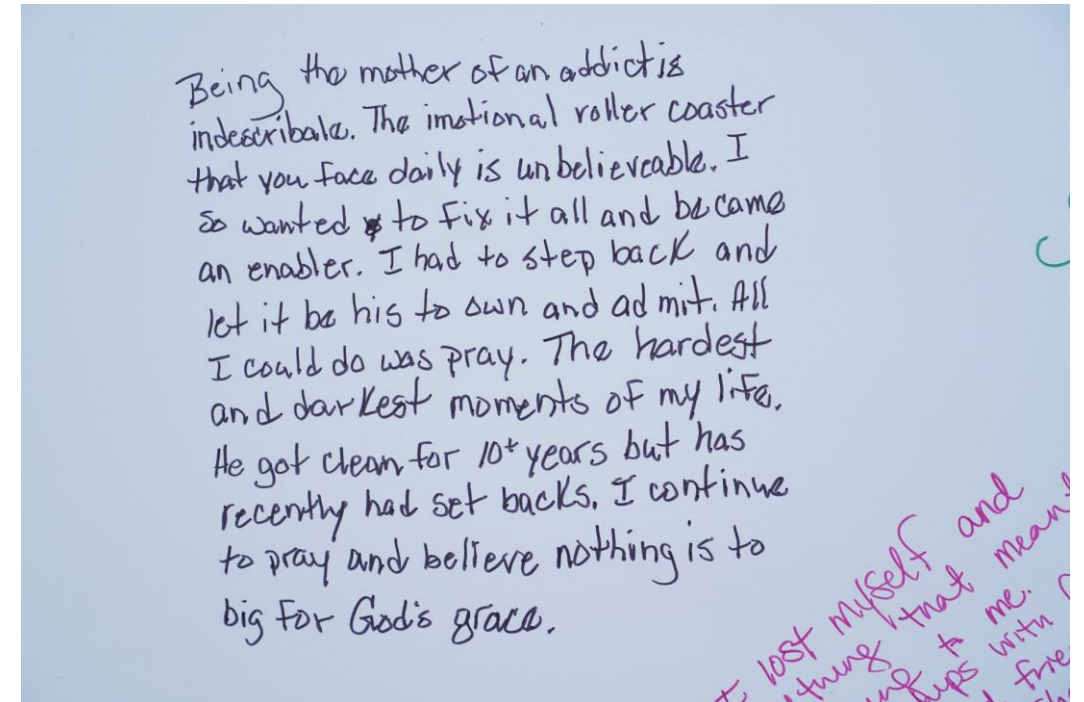 Being the mother of an addict is
indescribale. The imotional roller coaster
that you face daily is unbelieveable. I
so wanted to fix it all and became
an enabler. I had to step back and
let it be his to own and admit. All
I could do was pray. The hardest
and darkest moments of my life.
He got clean for 10+ years but has
recently had set backs. I continue
to pray and believe nothing is to
big for God's grace.
I lost myself and
that meant
to me.
with